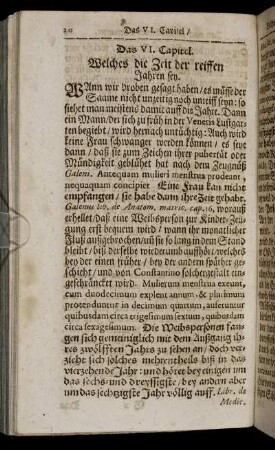 Das VI. Capitel /
Das VI. Capitel.
Welches die Zeit der reiffen
Jahren sey.
WAnn wir droben gesagt haben / es müsse der
Saame nicht unzeitig noch unreiff seyn: so
siehet man meistens damit auff die Jahr. Dann
ein Mann / der sich zu früh in der Veneris Lustgar-
ten begiebt / wird hernach untüchtig: Auch wird
keine Frau schwanger werden können / es seye
dann / daß sie zum Zeichen ihrer pubertät oder
Mündigkeit geblühet hat nach dem Zeugnüß
Galeni. Antequam mulieri menstrua prodeant,
nequaquam concipiet. Eine Frau kan nicht
empfangen / sie habe dann ihre Zeit gehabt.
Galenus lib. de Anatom. matric. cap. 16. worauß
erhellet / daß eine Weibsperson zur Kinder-Zeu-
gung erst bequem wird / wann ihr monatlicher
Fluß auffgebrochen / un sie so lang in dem Stand
bleibt / biß derselbe wiederumb auffhör, welches
bey der einen früher / bey der andern später ge-
schicht / und von Constantino solchergestalt ein-
geschräncket wird. Mulierum menstrua exeunt,
cum duodecimum explent annum, & plurimum
protenduntur in decimum quartum, auferuntur
quibusdam circa trigesimum sextum, quibusdam
circa sexagesimum. Die Weibspersonen fan-
gen sich gemeiniglich mit dem Außgang ih-
res zwölfften Jahrs zu sehen an / doch ver-
zieht sich solches mehrentheils biß in das
vierzehende Jahr: und höret bey einigen um
das sechs- und dreyssigste / bey andern aber
um das sechzigste Jahr völlig auff. Lib. de
Medic.